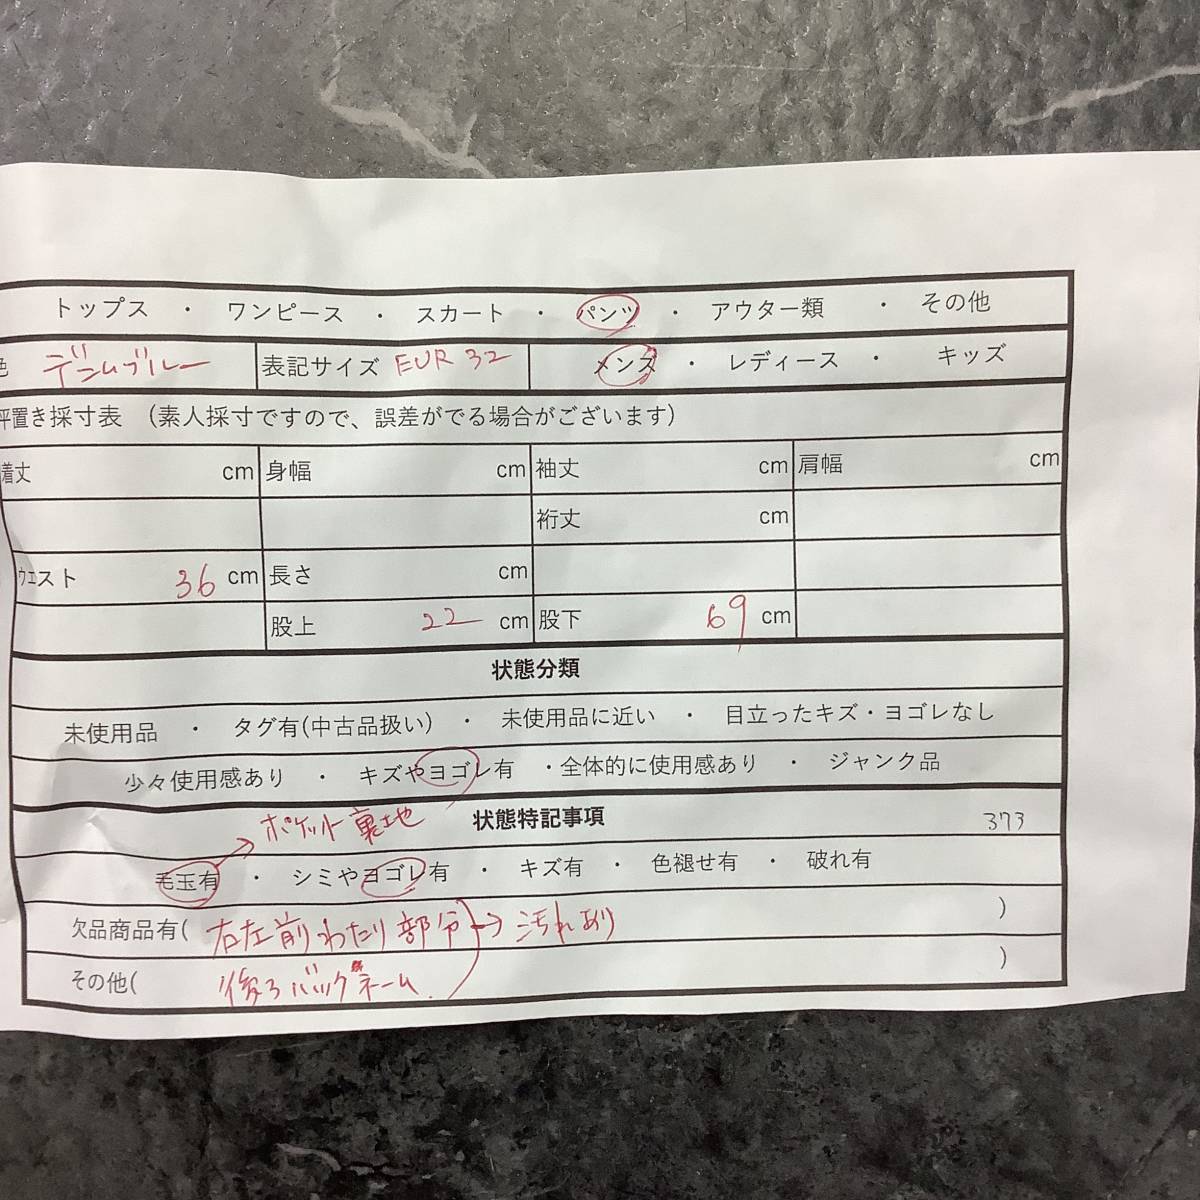 トップス ・ ワンピース ・ スカート ・ パンツ ・ アウター類 ・ その他
色 デニムブルー 表記サイズ EUR 32 メンズ ・ レディース ・ キッズ
平置き採寸表 （素人採寸ですので、誤差がでる場合がございます）
着丈 cm 身幅 cm 袖丈 cm 肩幅 cm
裄丈 cm
ウエスト 36 cm 長さ cm
股上 22 cm 股下 69 cm
状態分類
未使用品 ・ タグ有(中古品扱い) ・ 未使用品に近い ・ 目立ったキズ・ヨゴレなし
少々使用感あり ・ キズやヨゴレ有 ・全体的に使用感あり ・ ジャンク品
→ポケット裏地 状態特記事項 373
毛玉有 ・ シミやヨゴレ有 ・ キズ有 ・ 色褪せ有 ・ 破れ有
欠品商品有( 右左前わたり部分 →汚れあり )
その他( 後ろバックネーム )